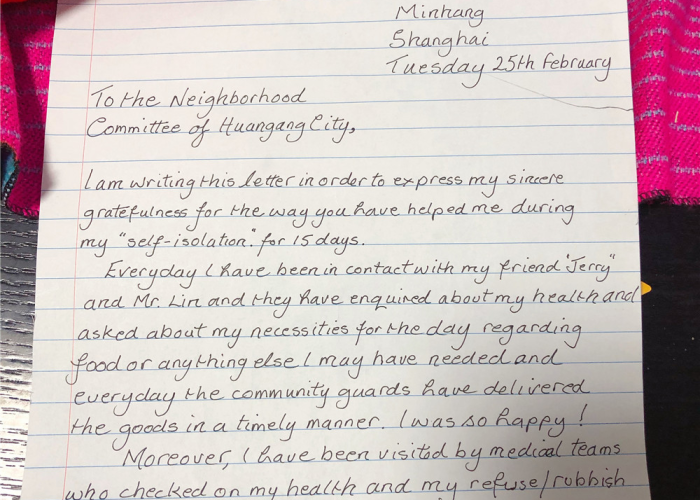 Minhang
Shanghai
Tuesday 25th february
To the Neighborhood
Committee of Huangang City,
I am writing this letter in order to express my sincere
gratefulness for the way you have helped me during
my "self-isolation" for 15 days.
Everyday I have been in contact with my friend "Jerry"
and Mr. Lin and they have enquired about my health and
asked about my necessities for the day regarding
food or anything else I may have needed and
everyday the community guards have delivered
the goods in a timely manner. I was so happy!
Moreover, I have been visited by medical teams
who checked on my health and my refuse/rubbish